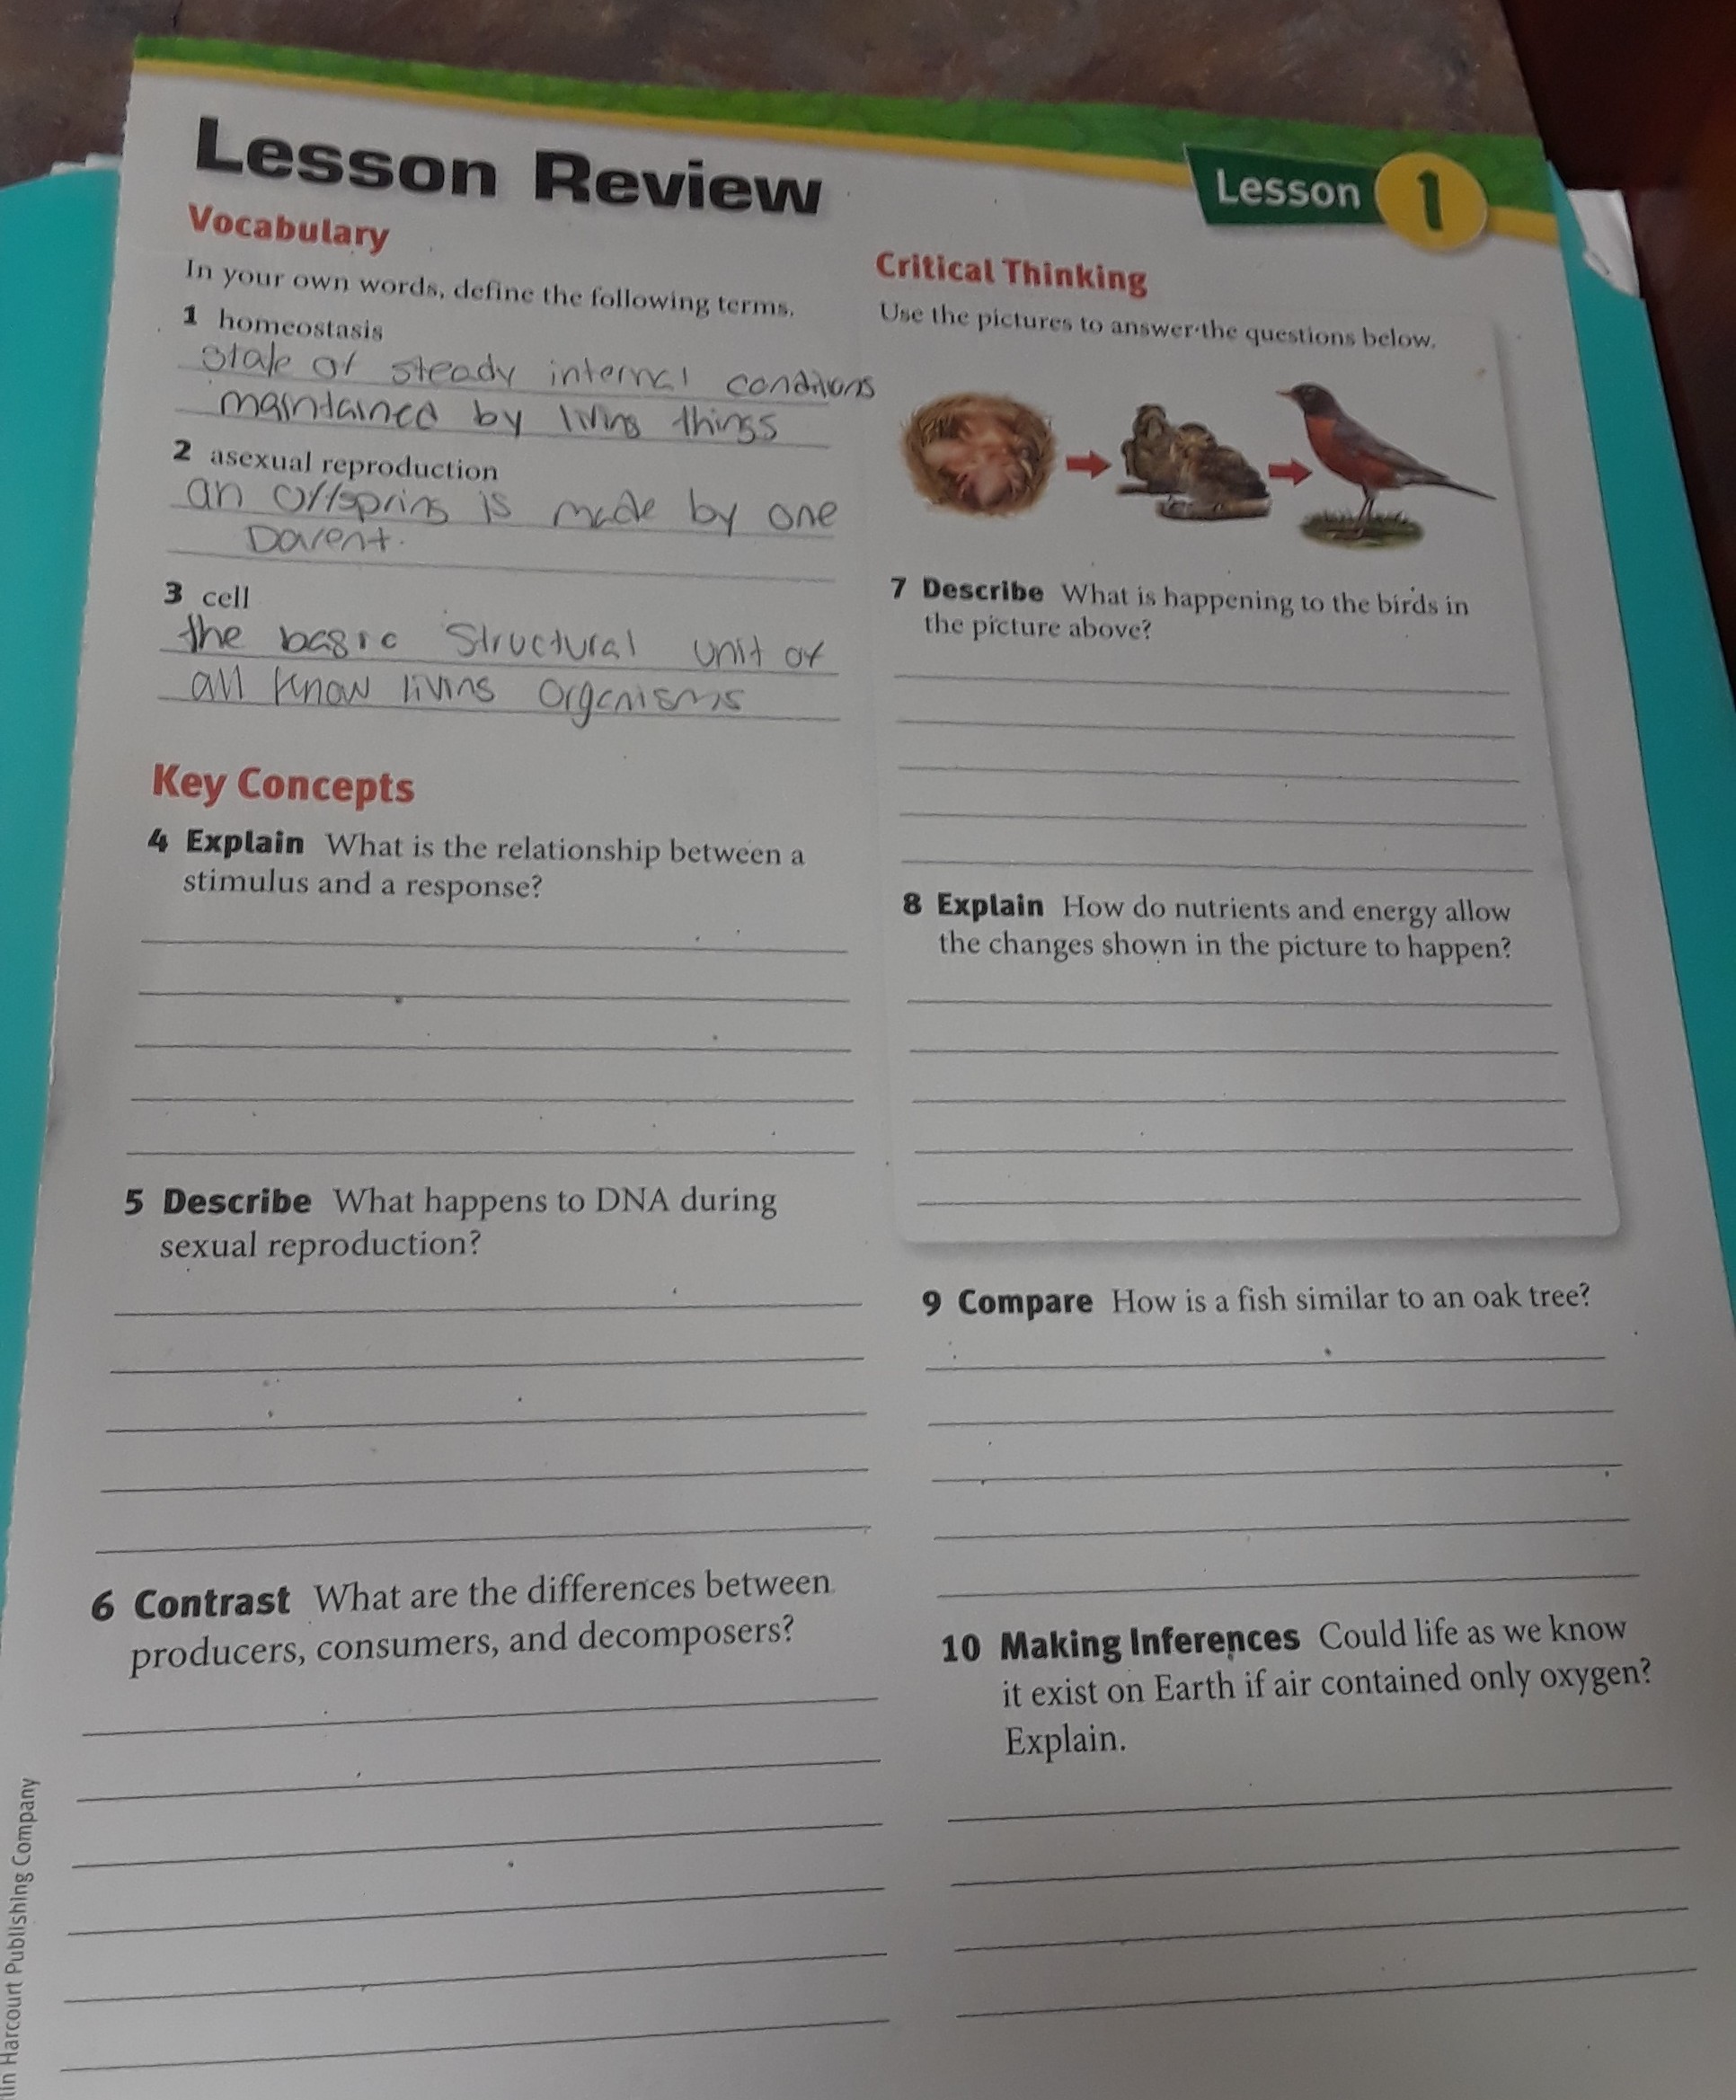 Lesson Review
Lesson 1
Vocabulary
In your own words, define the following terms.
1 homeostasis
state of steady internal conditions
maintained by living things
2 asexual reproduction
an offspring is made by one
parent.
3 cell
the basic structural unit of
all know living organisms
Key Concepts
4 Explain What is the relationship between a
stimulus and a response?
5 Describe What happens to DNA during
sexual reproduction?
6 Contrast What are the differences between
producers, consumers, and decomposers?
Critical Thinking
Use the pictures to answer the questions below.
7 Describe What is happening to the birds in
the picture above?
8 Explain How do nutrients and energy allow
the changes shown in the picture to happen?
9 Compare How is a fish similar to an oak tree?
10 Making Inferences Could life as we know
it exist on Earth if air contained only oxygen?
Explain.
Harcourt Publishing Company